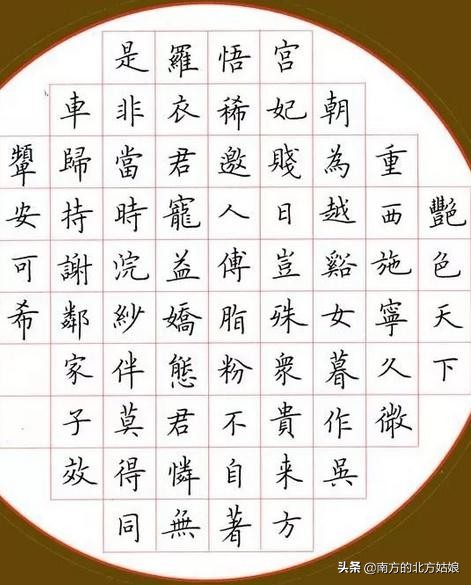 艷色天下
重西施寧久微
朝為越谿女暮作吳
宮妃賤日豈殊衆貴来方
悟稀邀人傅脂粉不自著
羅衣君寵益嬌態君憐無
是非當時浣紗伴莫得同
車歸持謝鄰家子效
顰安可希
头条 @南方的北方姑娘